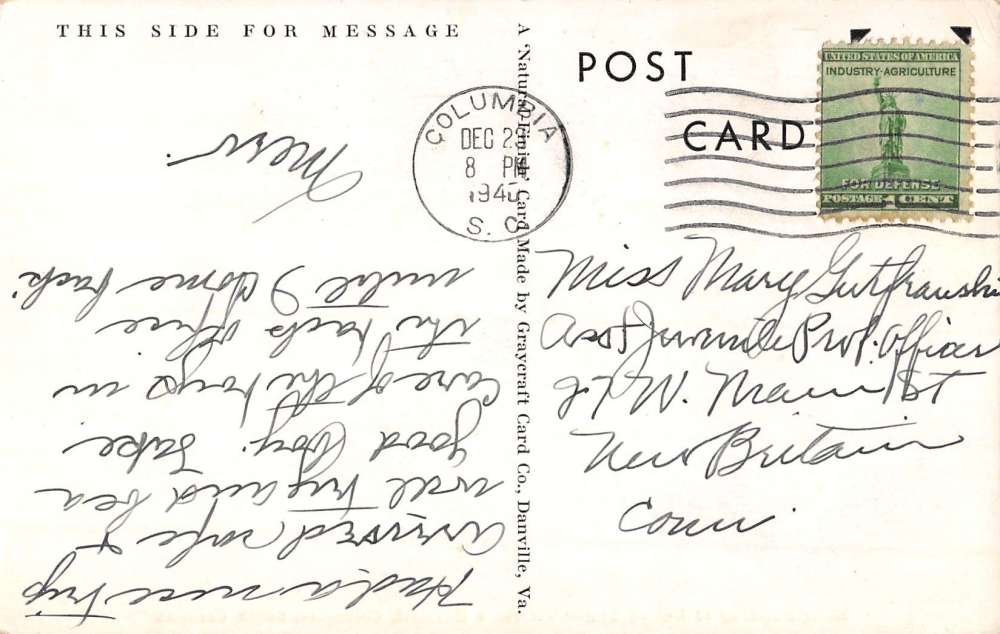 THIS SIDE FOR MESSAGE
Had a nice trip
arrived safe &
will try and be a
good boy. Take
Care of the boys in
the back office
until I Come back
A 'Natural-Finish' Card Made by Graycraft Card Co., Danville, Va.
POST
CARD
COLUMBIA
DEC 29
8 PM
1940
S. C
UNITED STATES OF AMERICA
INDUSTRY·AGRICULTURE
FOR DEFENSE
POSTAGE 1 CENT
Miss Mary Gutfranski
Asst Juvenile Prob. Officer
27 W. Main St
New Britain
Conn.